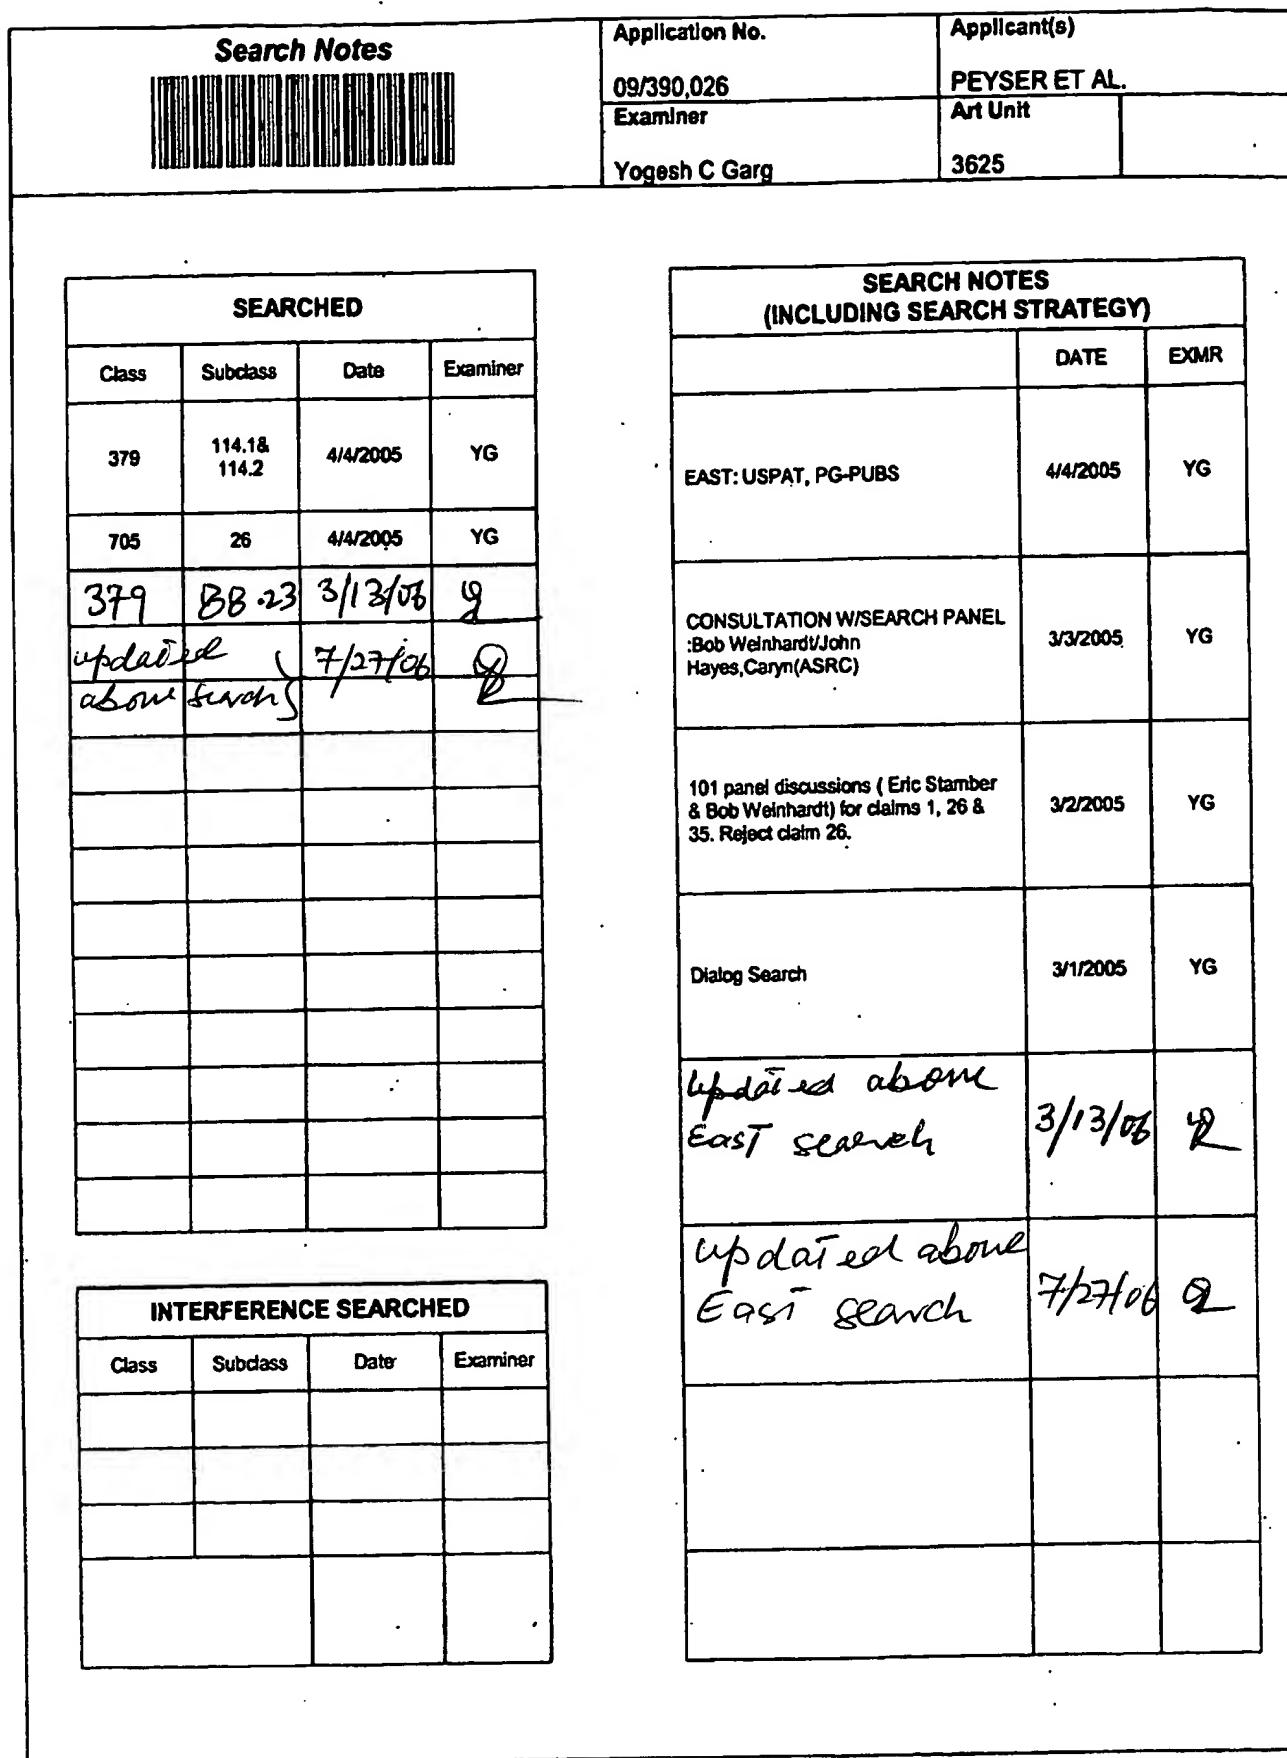 Search Notes
Application No.
09/390,026
Applicant(s)
PEYSER ET AL.
Examiner
Yogesh C Garg
Art Unit
3625
SEARCHED
Class Subclass Date Examiner
379 114.1& 114.2 4/4/2005 YG
705 26 4/4/2005 YG
379 88.23 3/13/06
updated 7/27/06
above search
INTERFERENCE SEARCHED
Class Subclass Date Examiner
SEARCH NOTES
(INCLUDING SEARCH STRATEGY)
DATE EXMR
EAST: USPAT, PG-PUBS 4/4/2005 YG
CONSULTATION W/SEARCH PANEL
:Bob Weinhardt/John 3/3/2005 YG
Hayes,Caryn(ASRC)
101 panel discussions ( Eric Stamber
& Bob Weinhardt) for claims 1, 26 & 3/2/2005 YG
35. Reject claim 26.
Dialog Search 3/1/2005 YG
Updated above
East search 3/13/06
updated above
East search 7/27/06